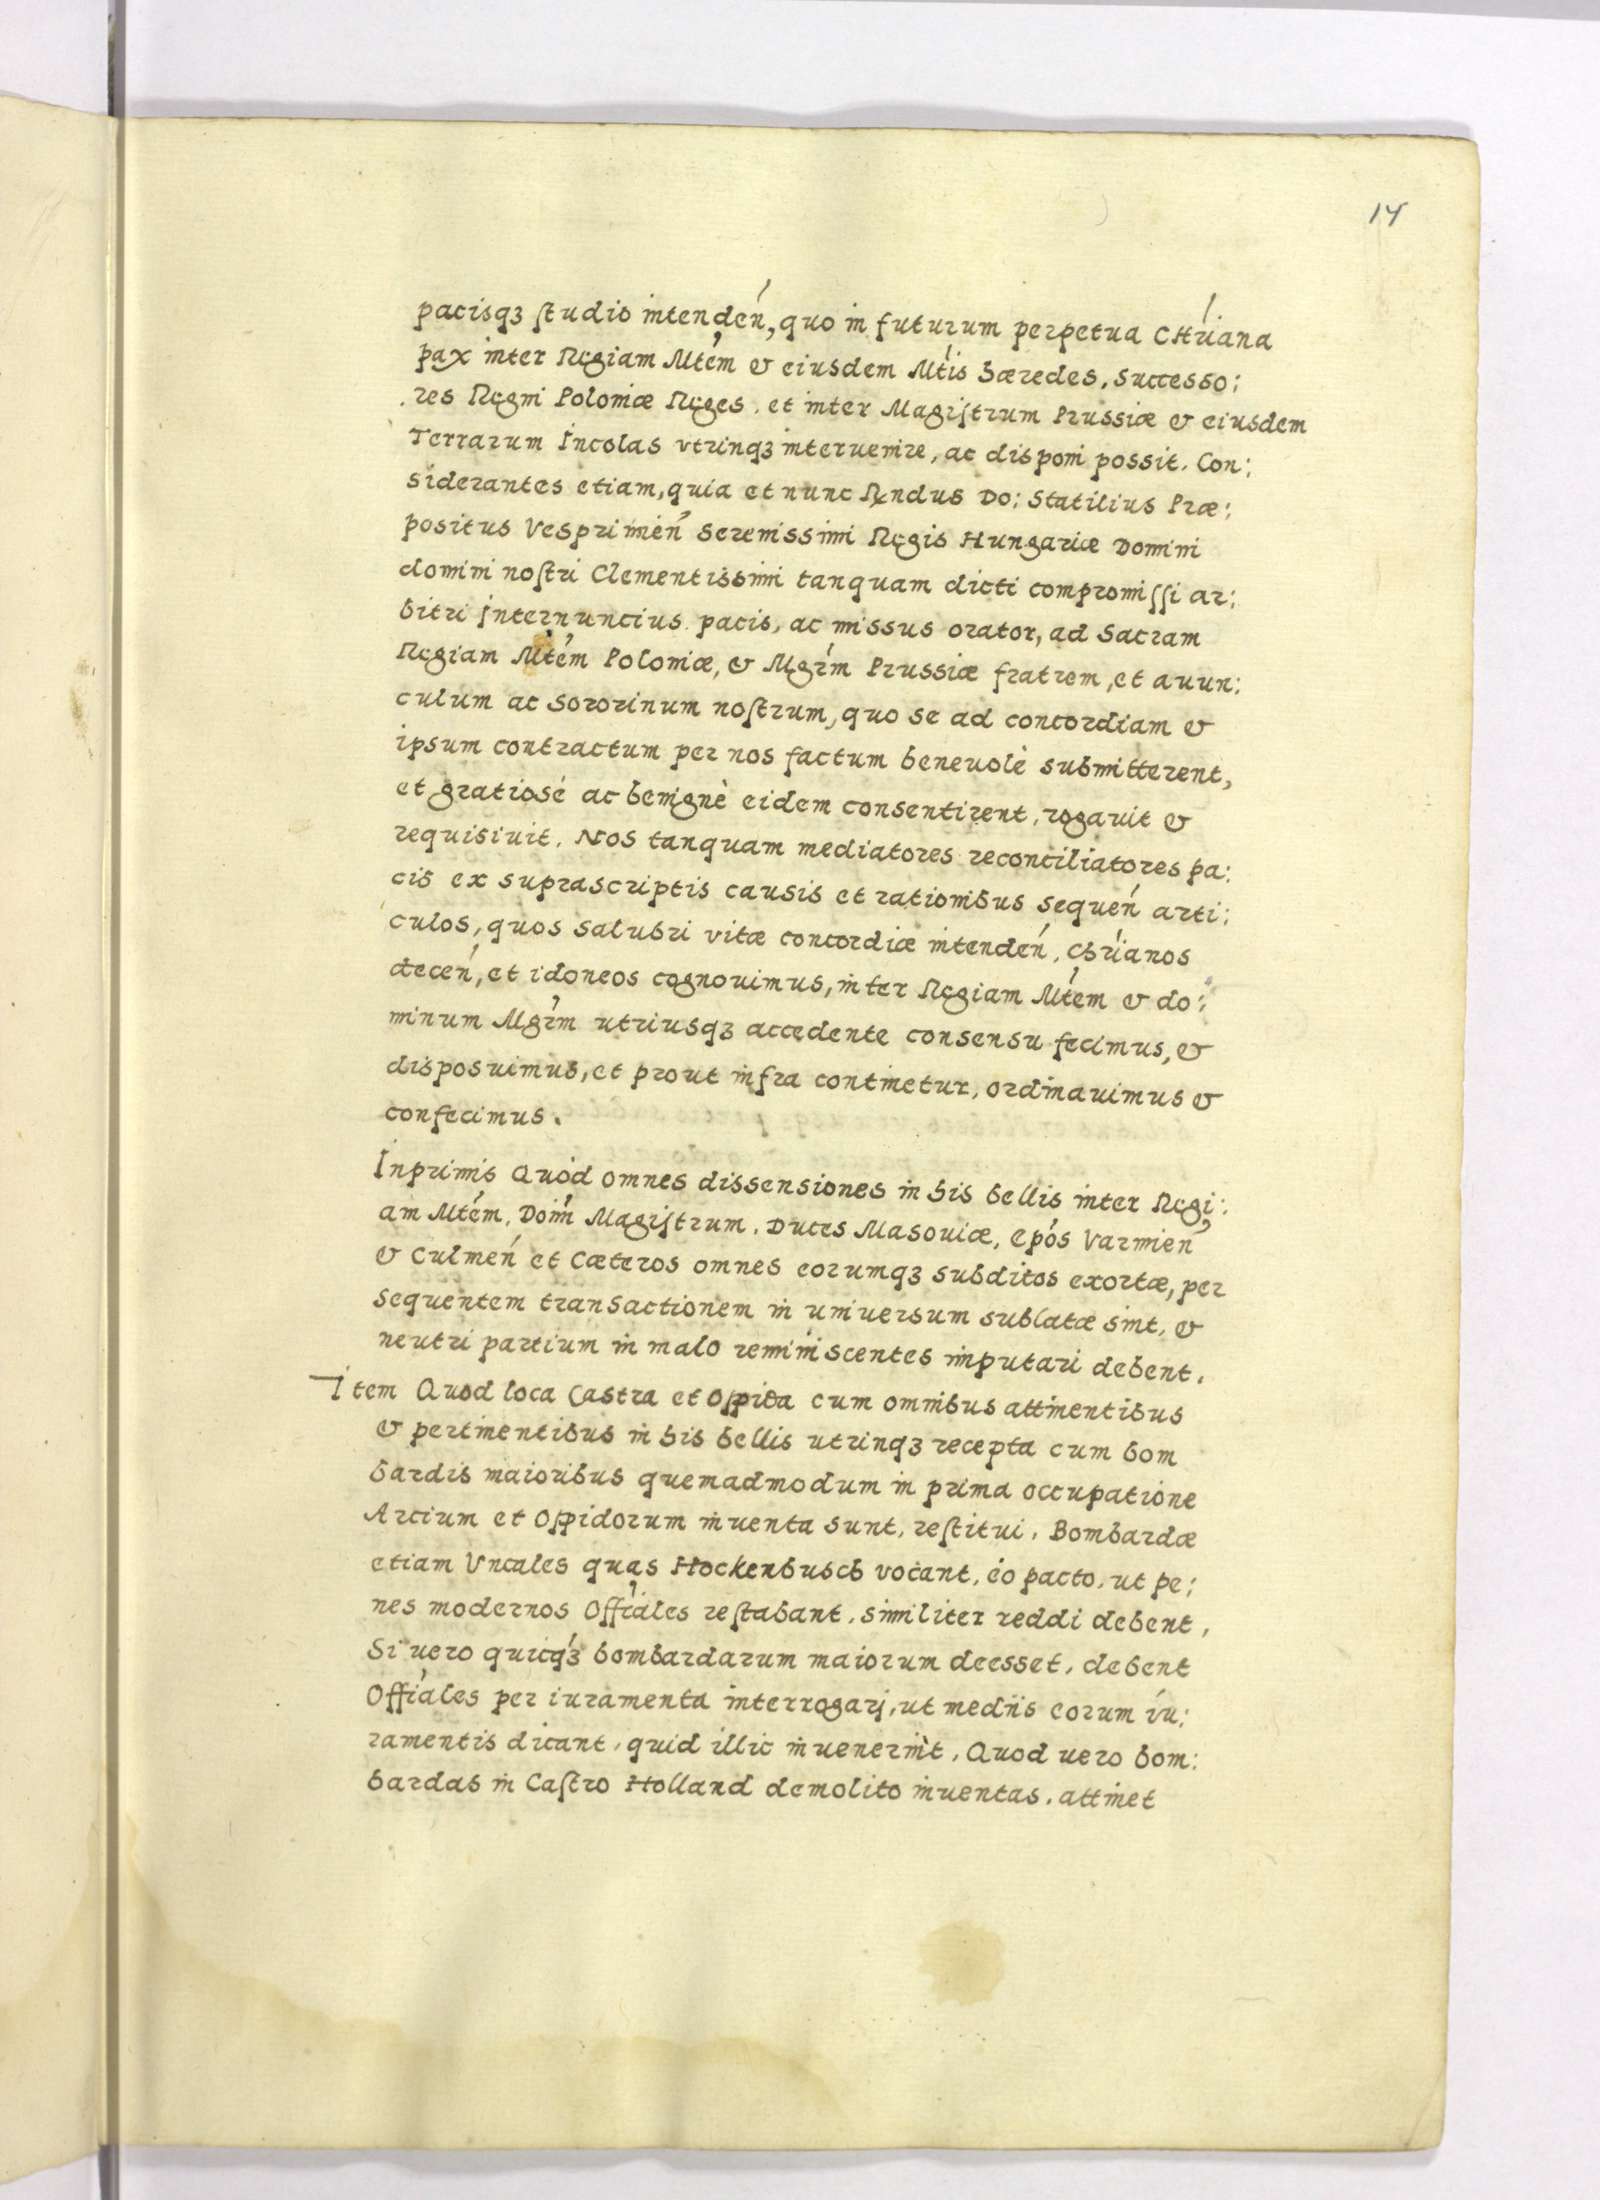 14
pacisqꝫ studio intendeń, quo in futurum perpetua CHr̃iana
pax inter Regiam Mtem & eiusdem Mtis hæredes, successo:
res Regni Poloniæ Reges, et inter Magistrum Prussiæ & eiusdem
Terrarum Incolas vtrinqꝫ interuenire, ac disponi possit. Con:
siderantes etiam, quia et nunc Rndus Do: Statilius Præ:
positus Vesprimień Serenissimi Regis Hungariæ Domini
domini nostri Clementissimi tanquam dicti compromissi ar:
bitri internuncius pacis, ac missus orator, ad Sacram
Regiam Mtem Poloniæ, & Mgrm Prussiæ fratrem, et auun:
culum ac sororinum nostrum, quo se ad concordiam &
ipsum contractum per nos factum beneuolè submitterent,
et gratiosé ac benignè eidem consentirent, rogauit &
requisiuit. Nos tanquam mediatores reconciliatores pa:
cis ex suprascriptis causis et rationibus sequeń arti:
culos, quos salubri vitæ concordiæ intendeń, Chr̃ianos
deceń, et idoneos cognouimus, inter Regiam Mtem & do:
minum Mgrm utriusqꝫ accedente consensu fecimus, &
disposuimus, et prout infra continetur, ordinauimus &
confecimus.
Inprimis Quòd omnes dissensiones in his bellis inter Regi:
am Mtem, Doim Magistrum, Duces Masouiæ, Epós Varmień
& Culmeń et Cæteros omnes eorumqꝫ subditos exortæ, per
sequentem transactionem in uniuersum sublatæ sint, &
neutri partium in malo reminiscentes imputari debent.
Item Quod loca Castra et Oppida cum omnibus attinentibus
& pertinentibus in his bellis utrinqꝫ recepta cum bom
bardis maioribus quemadmodum in prima occupatione
Arcium et Oppidorum inuenta sunt, restitui. Bombardæ
etiam Vncales quas Hockenbusch vocant, eo pacto, ut pe:
nes modernos Offiales restabant, similiter reddi debent,
Si uero quicqꝫ bombardarum maiorum deesset, debent
Offiales per iuramenta interrogarj, ut mediis eorum iu:
ramentis dicant, quid illic inuenerint, Quod uero bom:
bardas in Castro Holland demolito inuentas, attinet